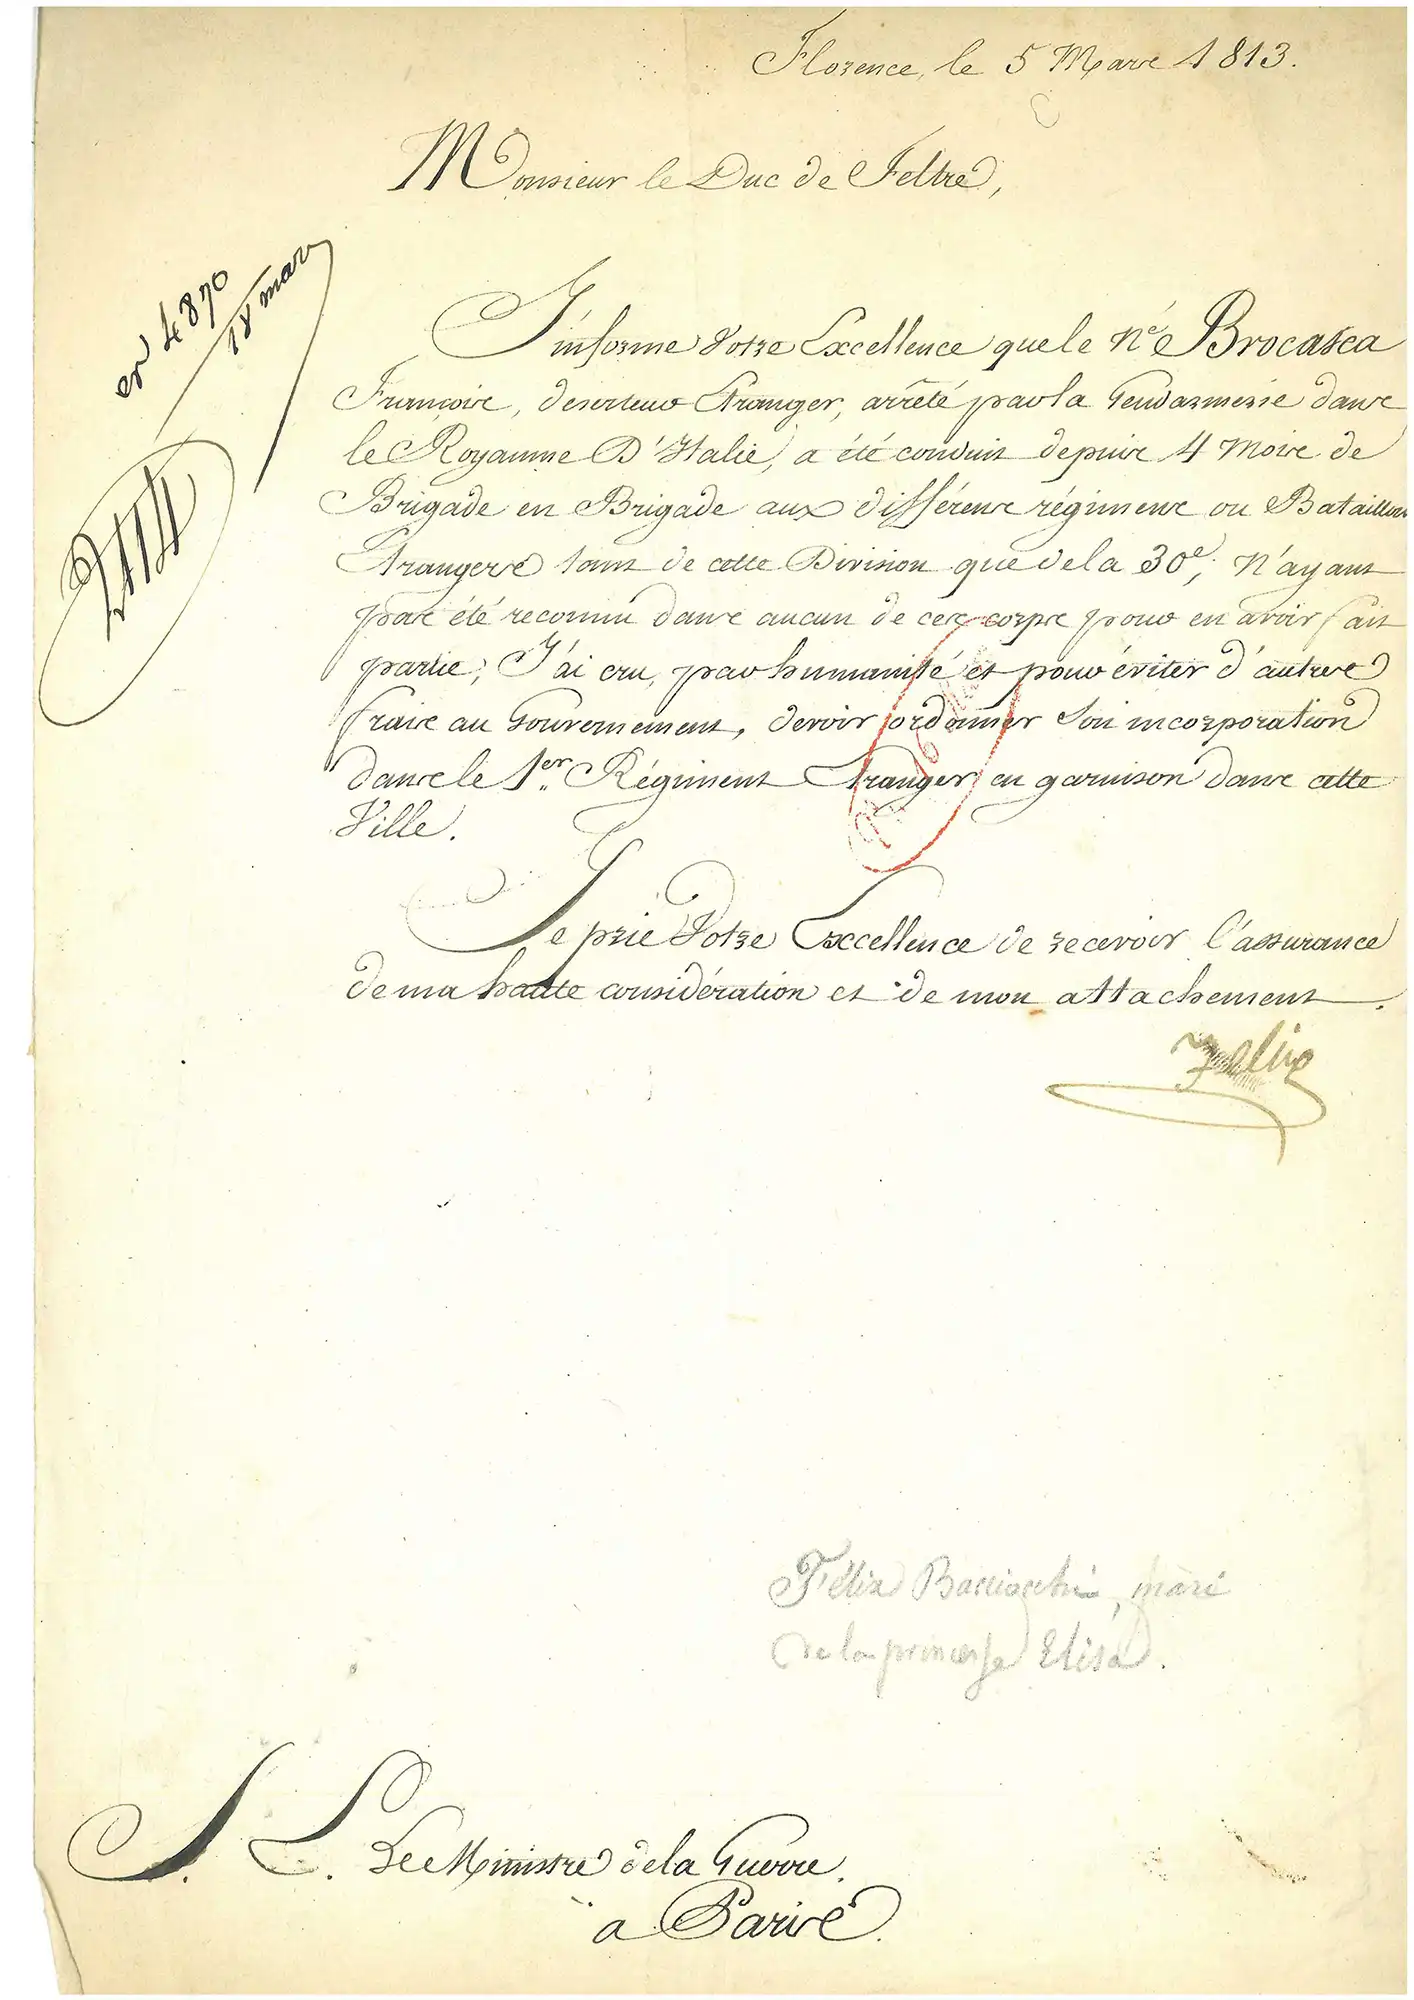 Florence, le 5 Mars 1813.
Monsieur le Duc de Feltre,
er 4870
18 mars
J'informe Votre Excellence que le né Brocasca
François, déserteur Etranger, arrêté par la Gendarmerie dans
le Royaume D'Italie, a été conduit depuis 4 Mois de
Brigade en Brigade aux différens régimens ou Bataillons
Etrangers tant de cette Division que de la 30e, n'ayant
pas été reconnu dans aucun de ces corps pour en avoir fait
partie, J'ai cru, par humanité et pour éviter d'autres
frais au Gouvernement, devoir ordonner son incorporation
dans le 1er Régiment Etranger en garnison dans cette
Ville.
Je prie Votre Excellence de recevoir l'assurance
de ma haute considération et de mon attachement.
Felix
Félix Bacciocchi, mari
de la princesse Elisa.
S. E. Le Ministre de la Guerre.
a Paris.